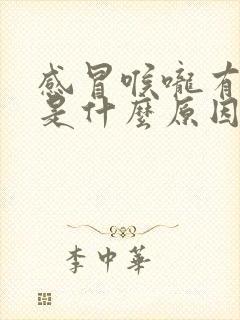 感冒喉嚨有
是什麼原因
李中華